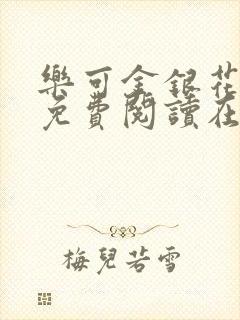 樂可金銀花
免費閱讀在
梅兒若雪